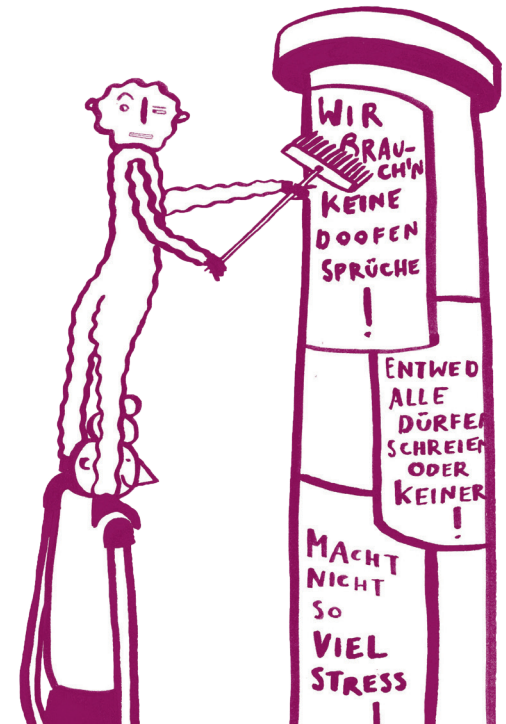 WIR
BRAU-
CH'N
KEINE
DOOFEN
SPRÜCHE
!
ENTWED
ALLE
DÜRFEN
SCHREIEN
ODER
KEINER
!
MACHT
NICHT
SO
VIEL
STRESS
!